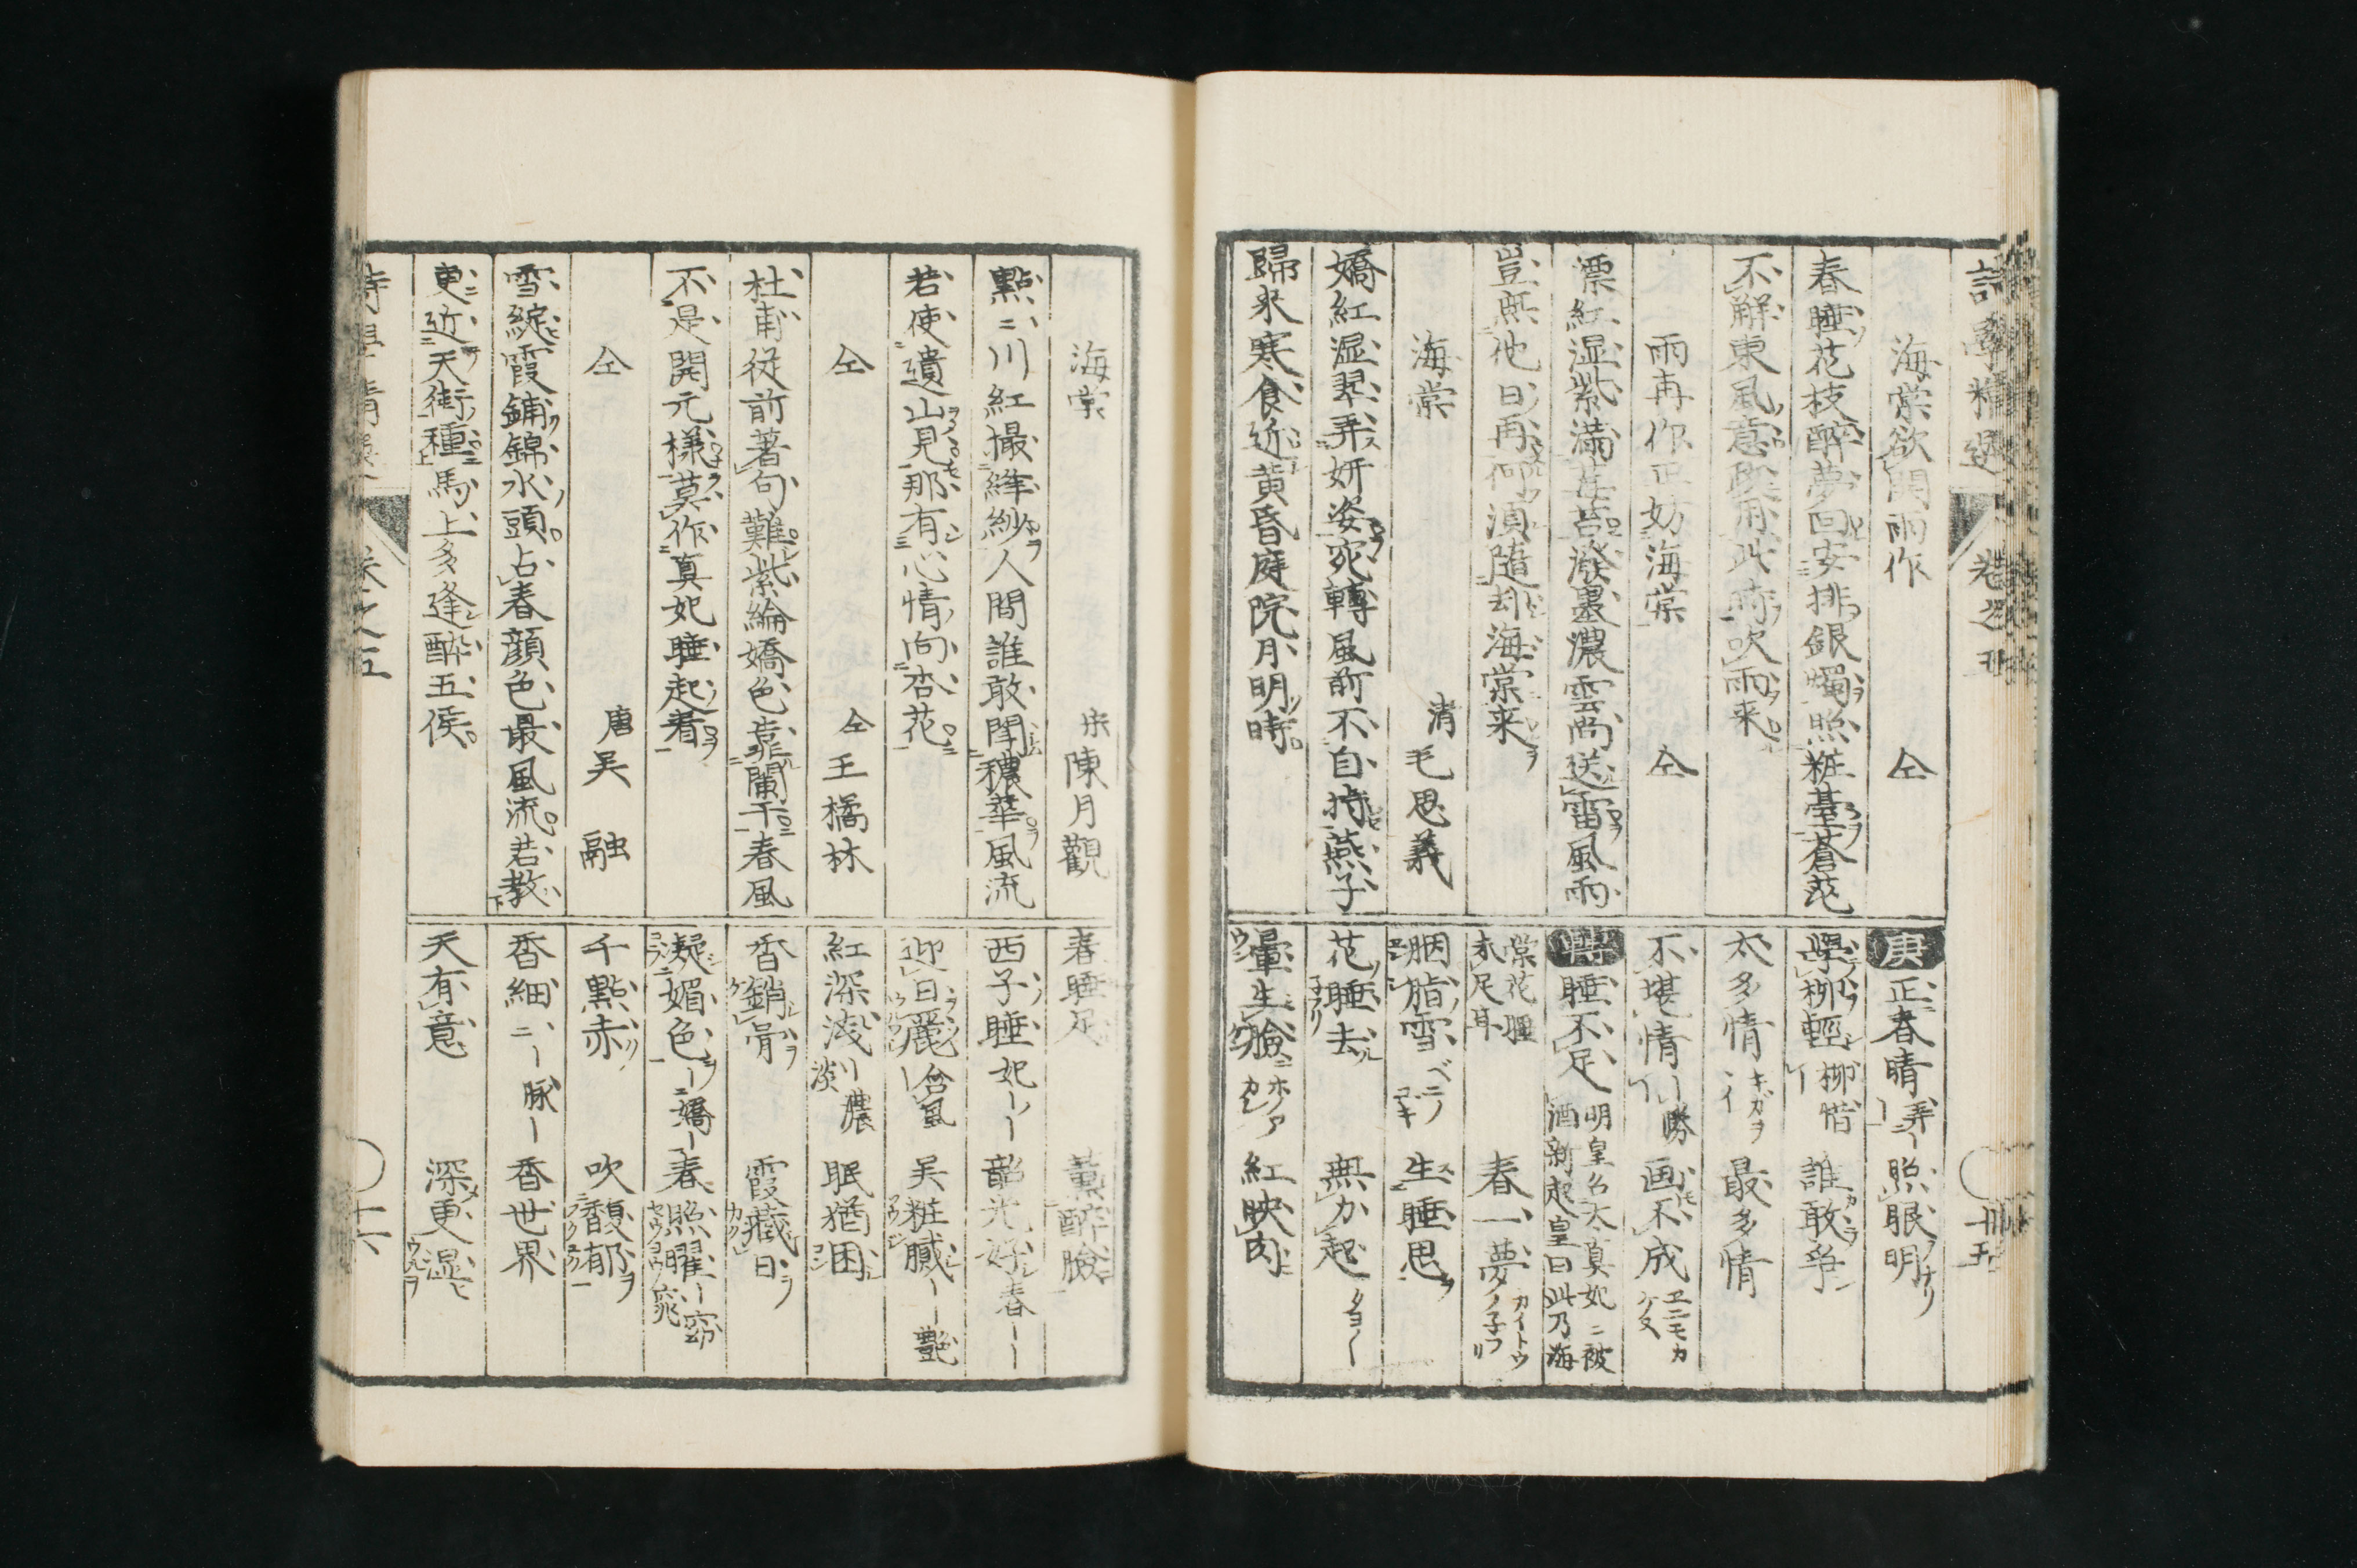 詩學精選
卷之五
海棠欲開雨作
仝
春睡花枝醉夢回安排銀燭照粧臺蒼茫
不解東風意政用此時吹雨来
雨再作正妨海棠
仝
漂紅湿紫滿莓苔潑墨濃雲尚送雷風雨
豈無他日再何須隨却海棠来
海棠
清 毛思義
嬌紅湿翠弄妍姿宛轉風前不自持燕子
歸来寒食近黄昏庭院月明時
庚 正春晴弄ー 照眼明
學柳輕 柳惜 誰敢爭
太多情 最多情
不堪情 勝 画不成
睡不足 明皇召太真妃ニ被
酒新起皇曰此乃海
棠花睡
未足耳 春一夢
胭脂雪 生睡思
花睡去 無力起
暈生臉 紅映肉
海棠
宋 陳月觀
點ニ川紅撮絳紗人間誰敢鬪穠華風流
若使遺山見那有心情向杏花
仝
仝 王橘林
杜甫従前著句難紫綸嬌色靠闌干春風
不是開元様莫作真妃睡起看
仝
唐 吴融
雪綻霞鋪錦水頭占春顔色最風流若教
更近天街種馬上多逢醉五侯
春睡足 薫醉臉
西子睡 妃 韶光好 春
迎日麗 含風 吴粧膩 艶
紅深浅 濃淡 眠猶困
香銷骨 霞蔵日
凝媚色 嬌 春照曜 窈窕
千點赤 吹馥郁
香細ニ 脉 香世界
天有意 深更湿
卷之五